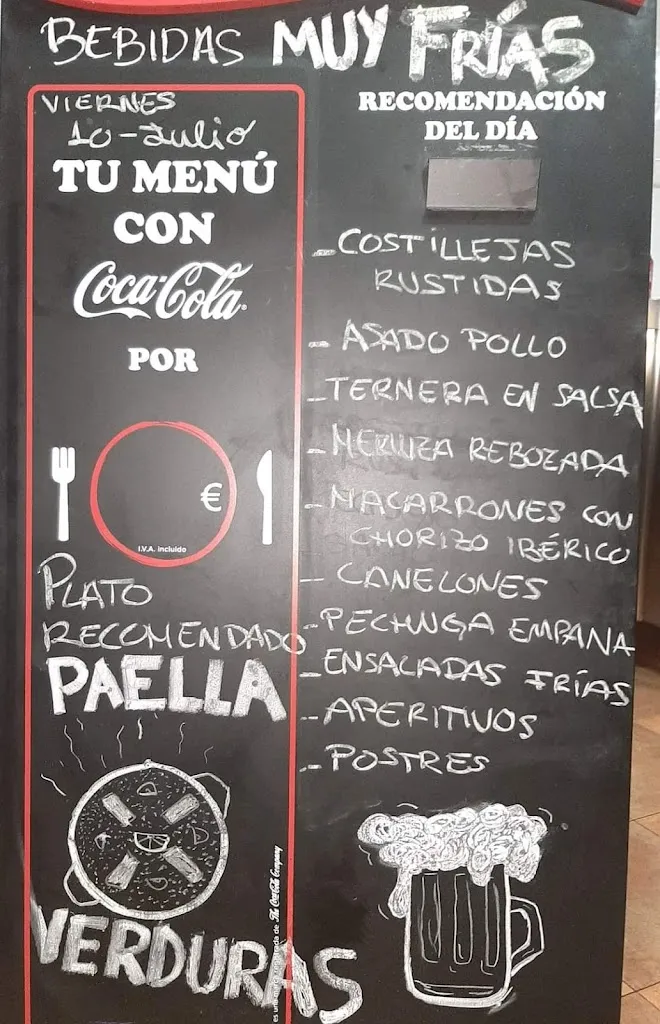 BEBIDAS MUY FRÍAS
VIERNES
10-Julio
TU MENÚ
CON
Coca-Cola
POR
€
I.V.A. incluido
PLATO
RECOMENDADO
PAELLA
VERDURAS
RECOMENDACIÓN
DEL DÍA
-COSTILLEJAS
RUSTIDAS
- ASADO POLLO
-TERNERA EN SALSA
-MERLUZA REBOZADA
-MACARRONES CON
CHORIZO IBÉRICO
- CANELONES
-PECHUGA EMPANA
-ENSALADAS FRÍAS
-APERITIVOS
-POSTRES
The Coca-Cola Company